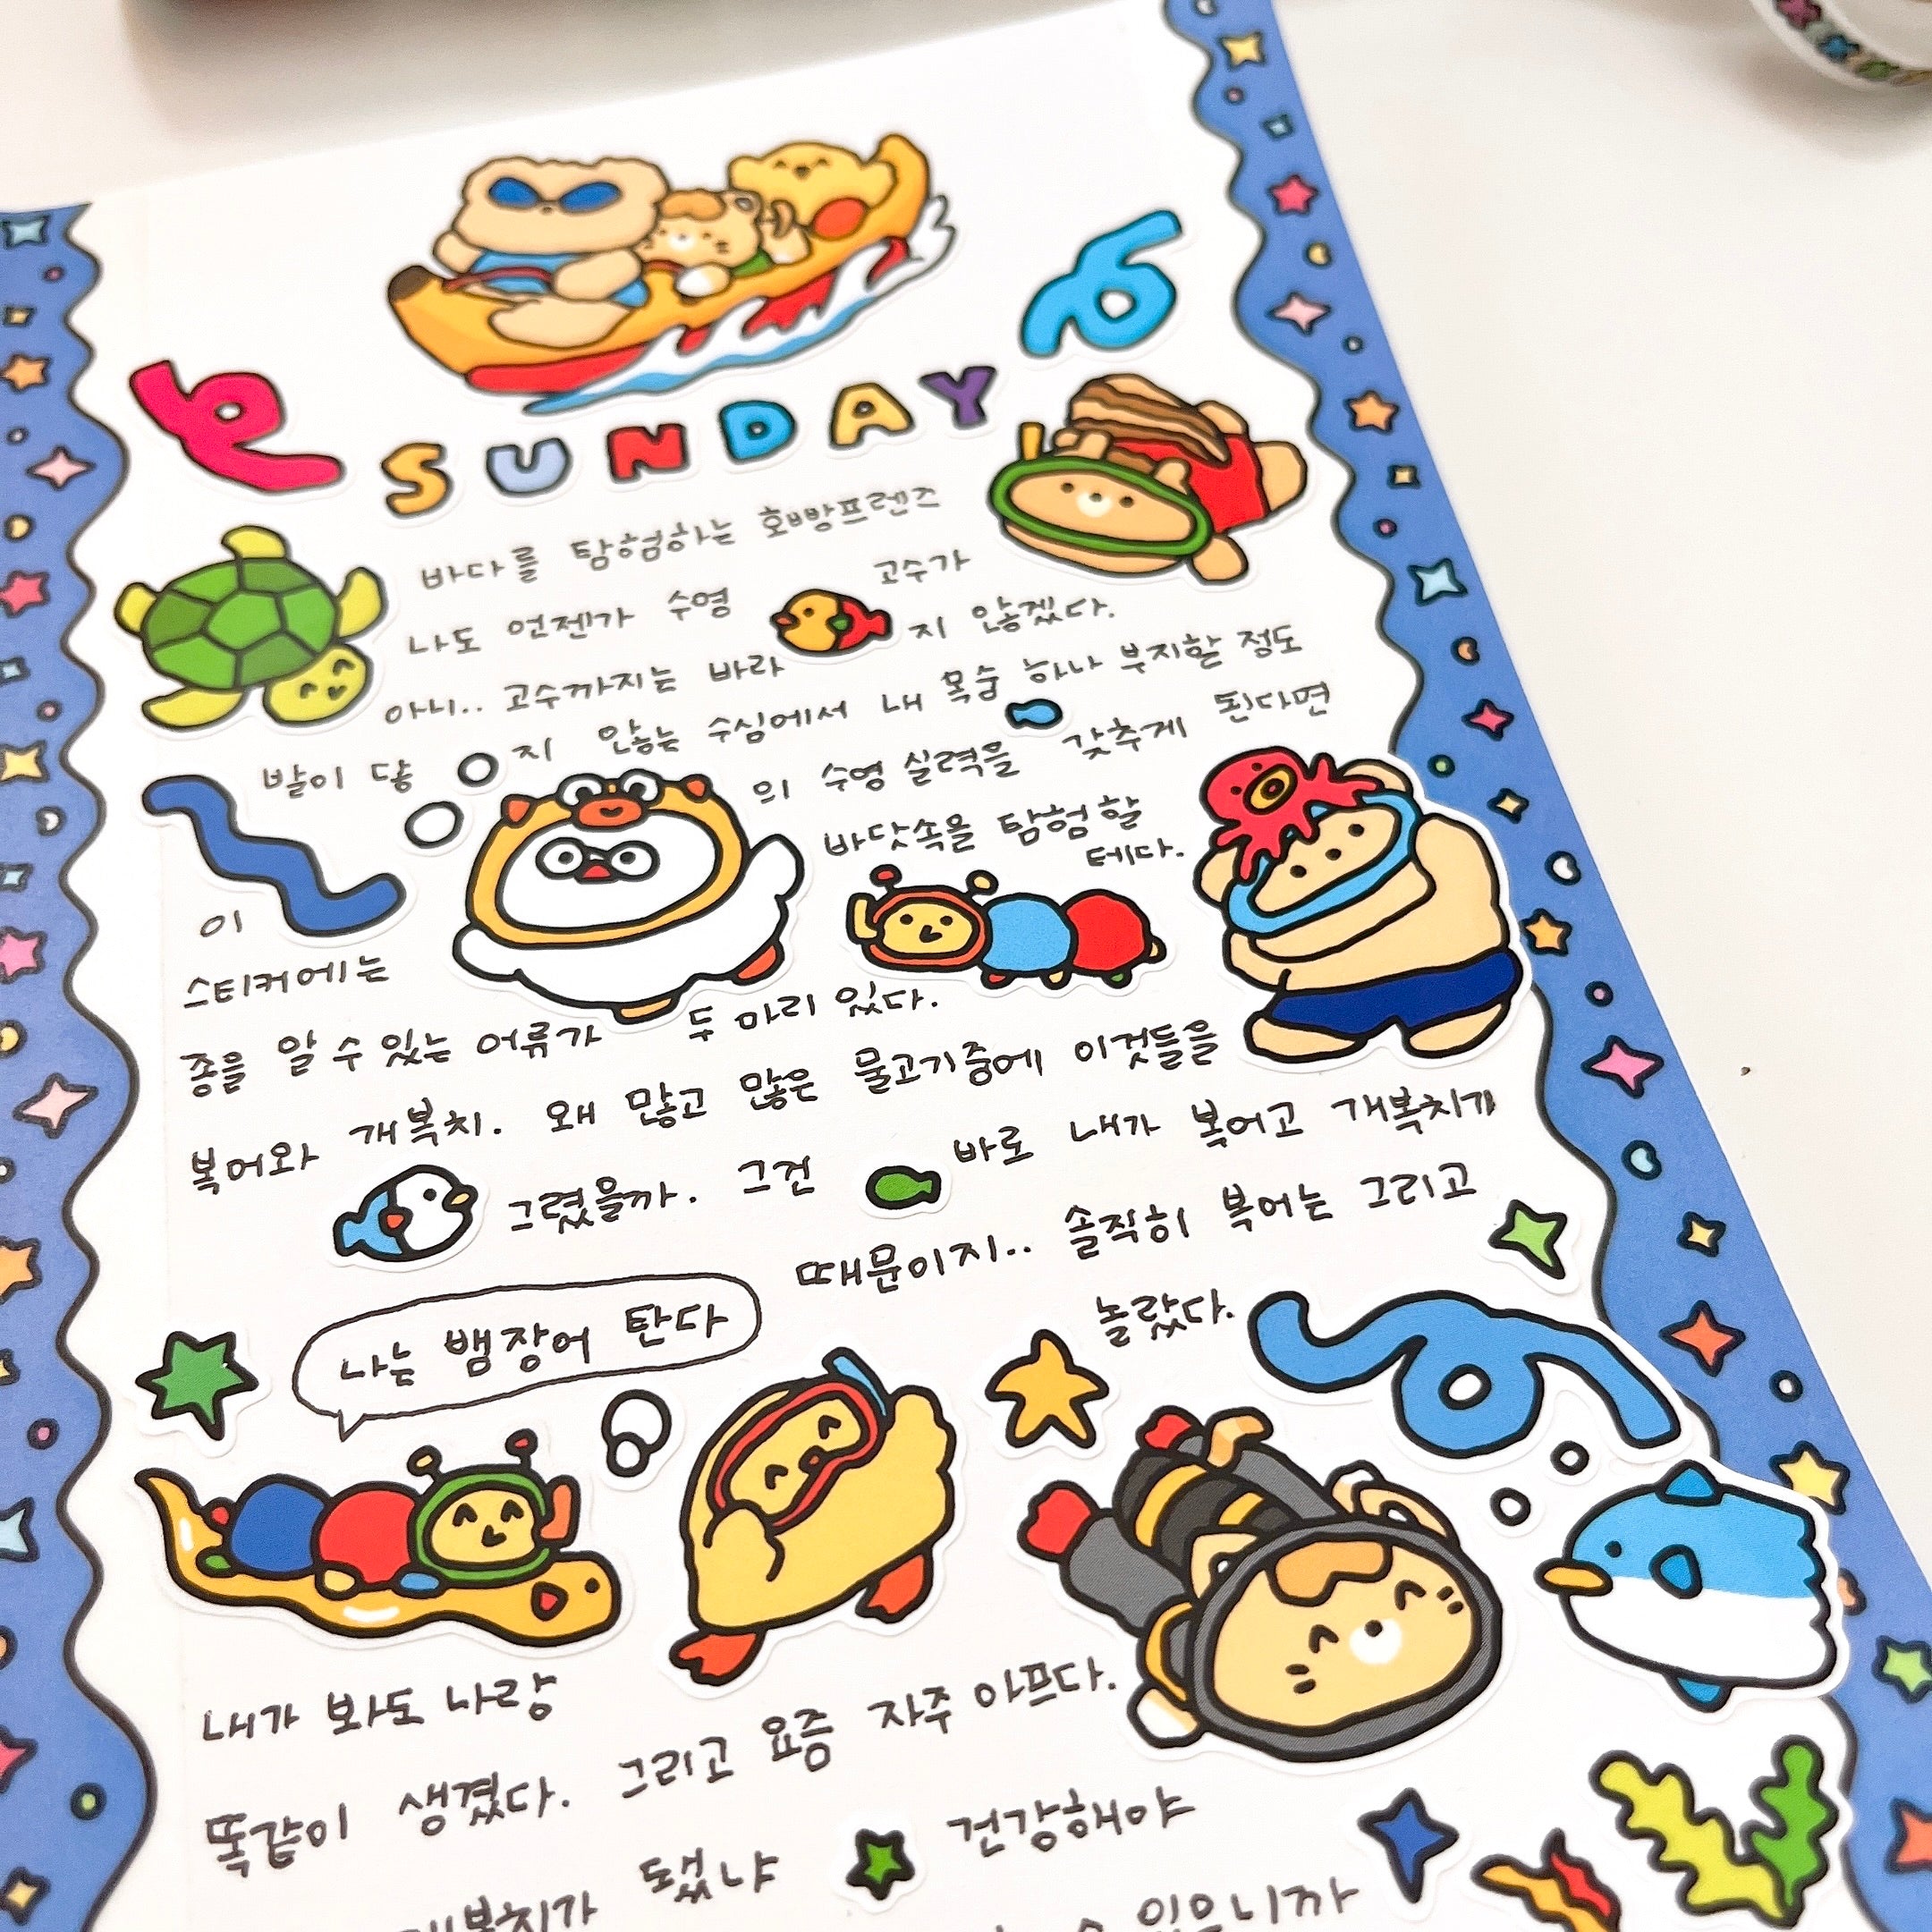 SUNDAY
바다를 탐험하는 호빵프렌즈
나도 언젠가 수영 고수가
아니.. 고수까지는 바라지 않겠다.
발이 닿지 않는 수심에서 내 목숨 하나 부지할 정도
의 수영 실력을 갖추게 된다면
바닷속을 탐험할
테다.
이
스티커에는
종을 알 수 있는 어류가 두 마리 있다.
복어와 개복치. 왜 많고 많은 물고기중에 이것들을
그렸을까. 그건 바로 내가 복어고 개복치기
때문이지.. 솔직히 복어는 그리고
놀랐다.
나는 뱀장어 탄다
내가 봐도 나랑
똑같이 생겼다. 그리고 요즘 자주 아프다.
개복치가 됐냐 건강해야
있으니까